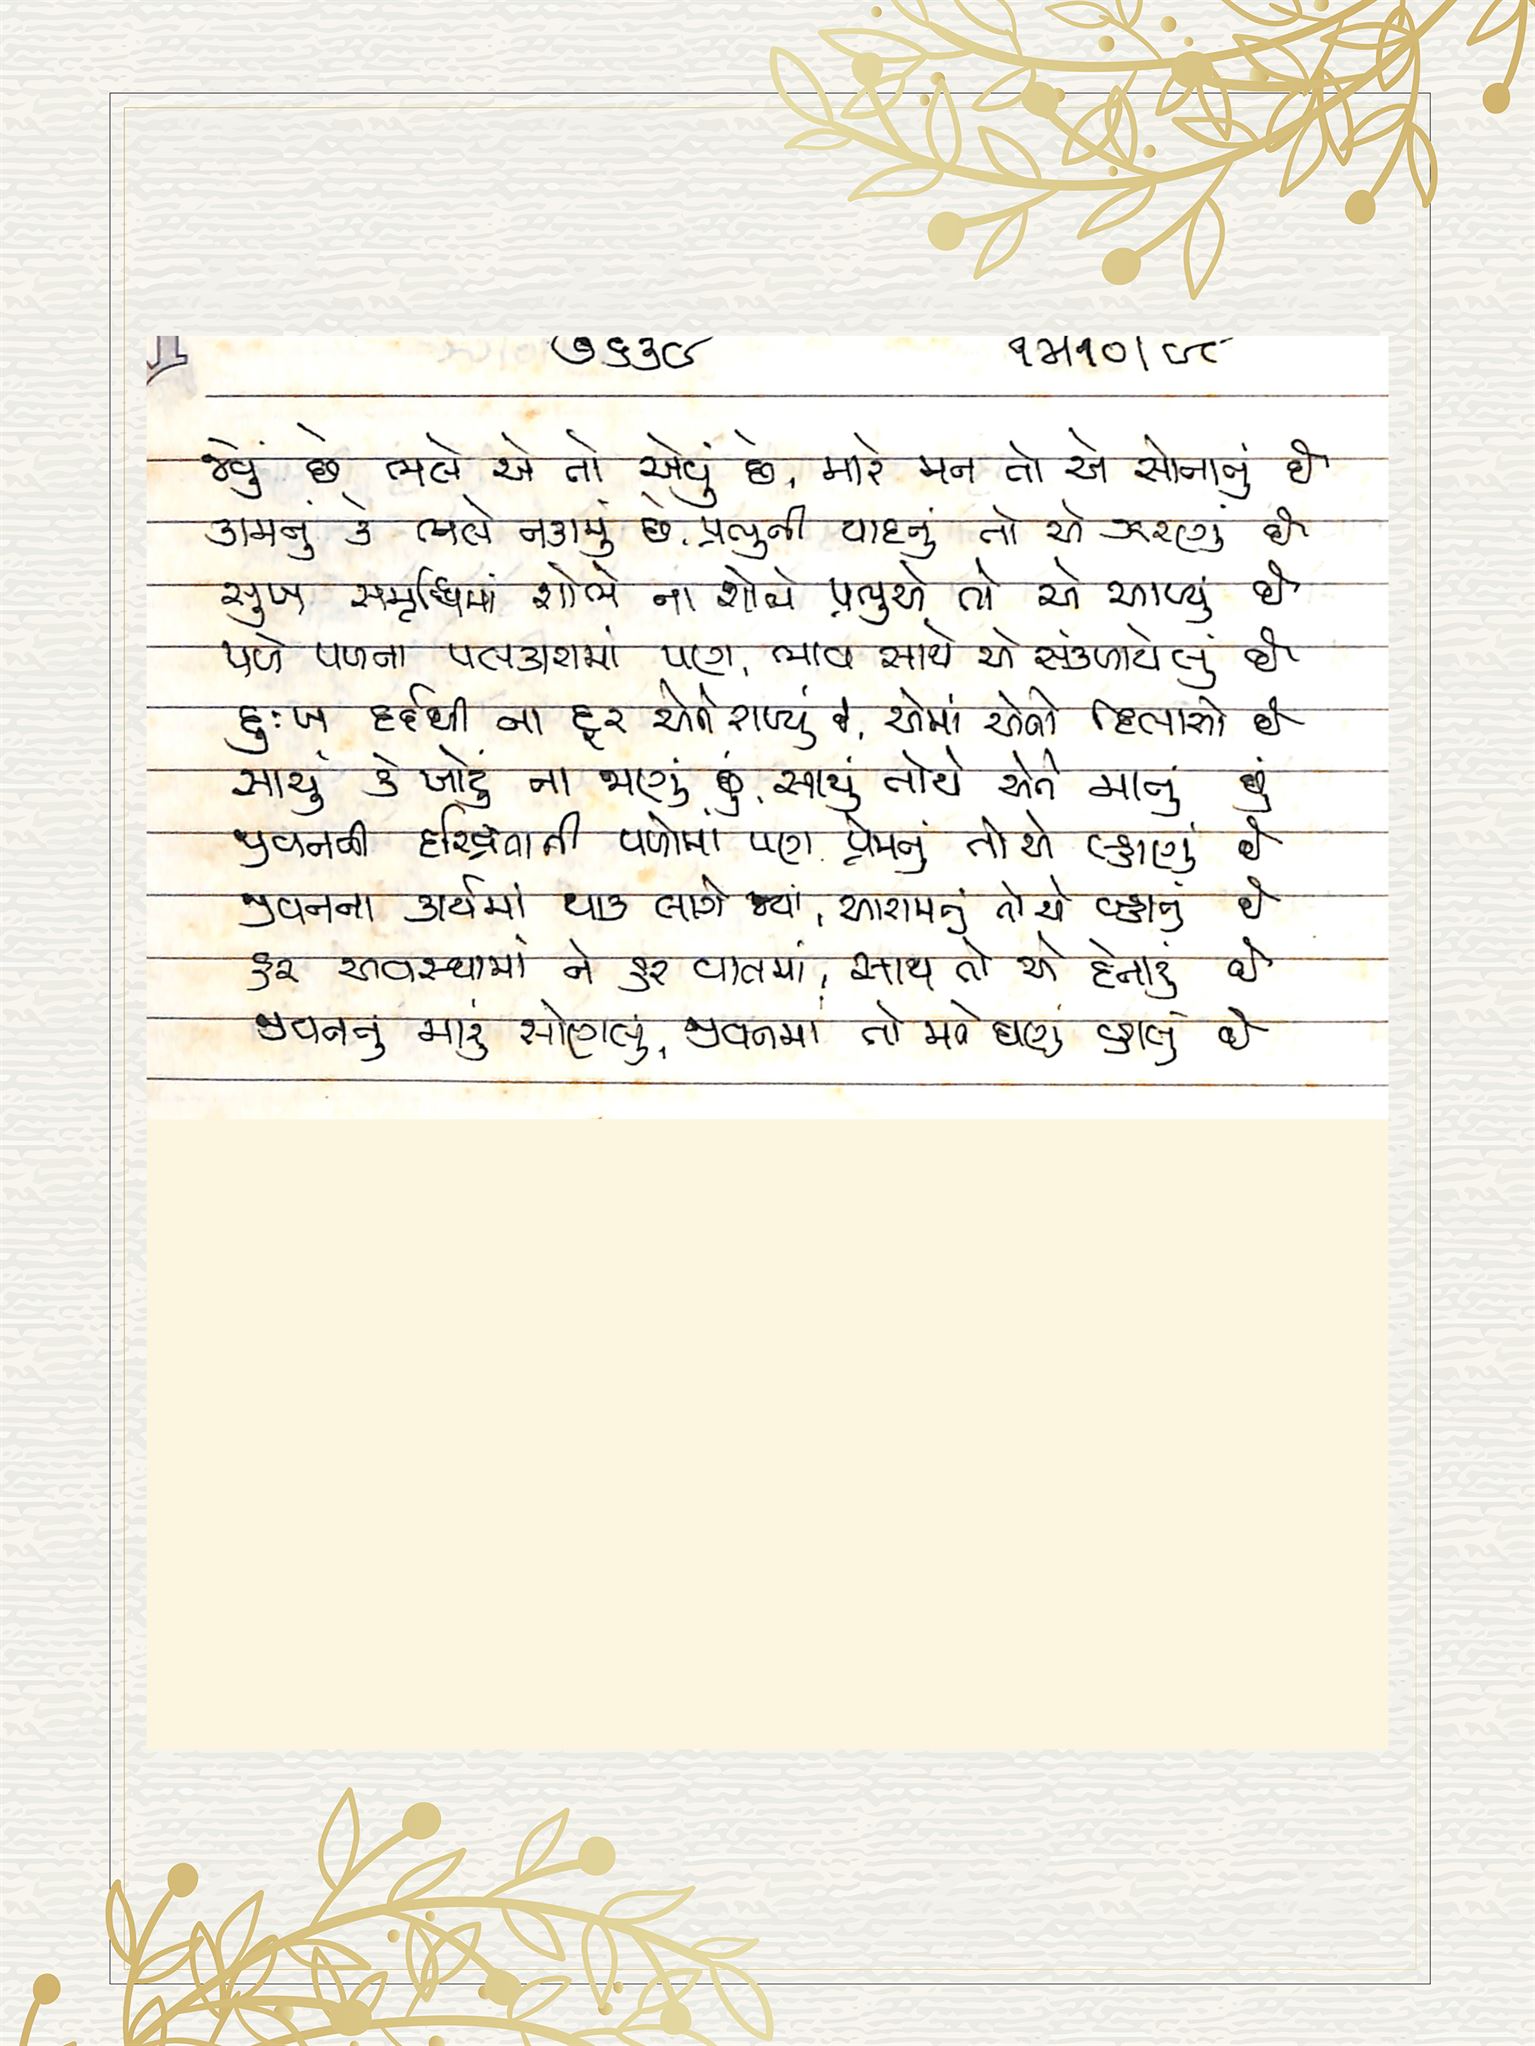 ૭૬૩૯ ૧૫।૧૦।૯૮
જેવું છે ભલે એ તો એવું છે, મારે મન તો એ સોનાનું છે
કામનું કે ભલે નકામું છે, પ્રભુની યાદનું તો એ ઝરણું છે
સુખ સમૃદ્ધિમાં શોભે ના શોભે પ્રભુએ તો એ આપ્યું છે
પળે પળના પલકારામાં પણ, ભાવ સાથે એ સંકળાયેલું છે
દુઃખ દર્દથી ના દૂર એને રાખ્યું છે, એમાં એનો દિલાસો છે
સાચું કે ખોટું ના જાણું છું, સાચું તોયે એને માનું છું
જીવનની દરિદ્રતાની પળોમાં પણ પ્રેમનું તો એ લ્હાણું છે
જીવનના કાર્યમાં થાક લાગે જ્યાં, આરામનું તો એ બ્હાનું છે
હર અવસ્થામાં ને હર વાતમાં, સાથ તો એ દેનારું છે
જીવનનું મારું સોણલું, જીવનમાં તો મને ઘણું વ્હાલું છે